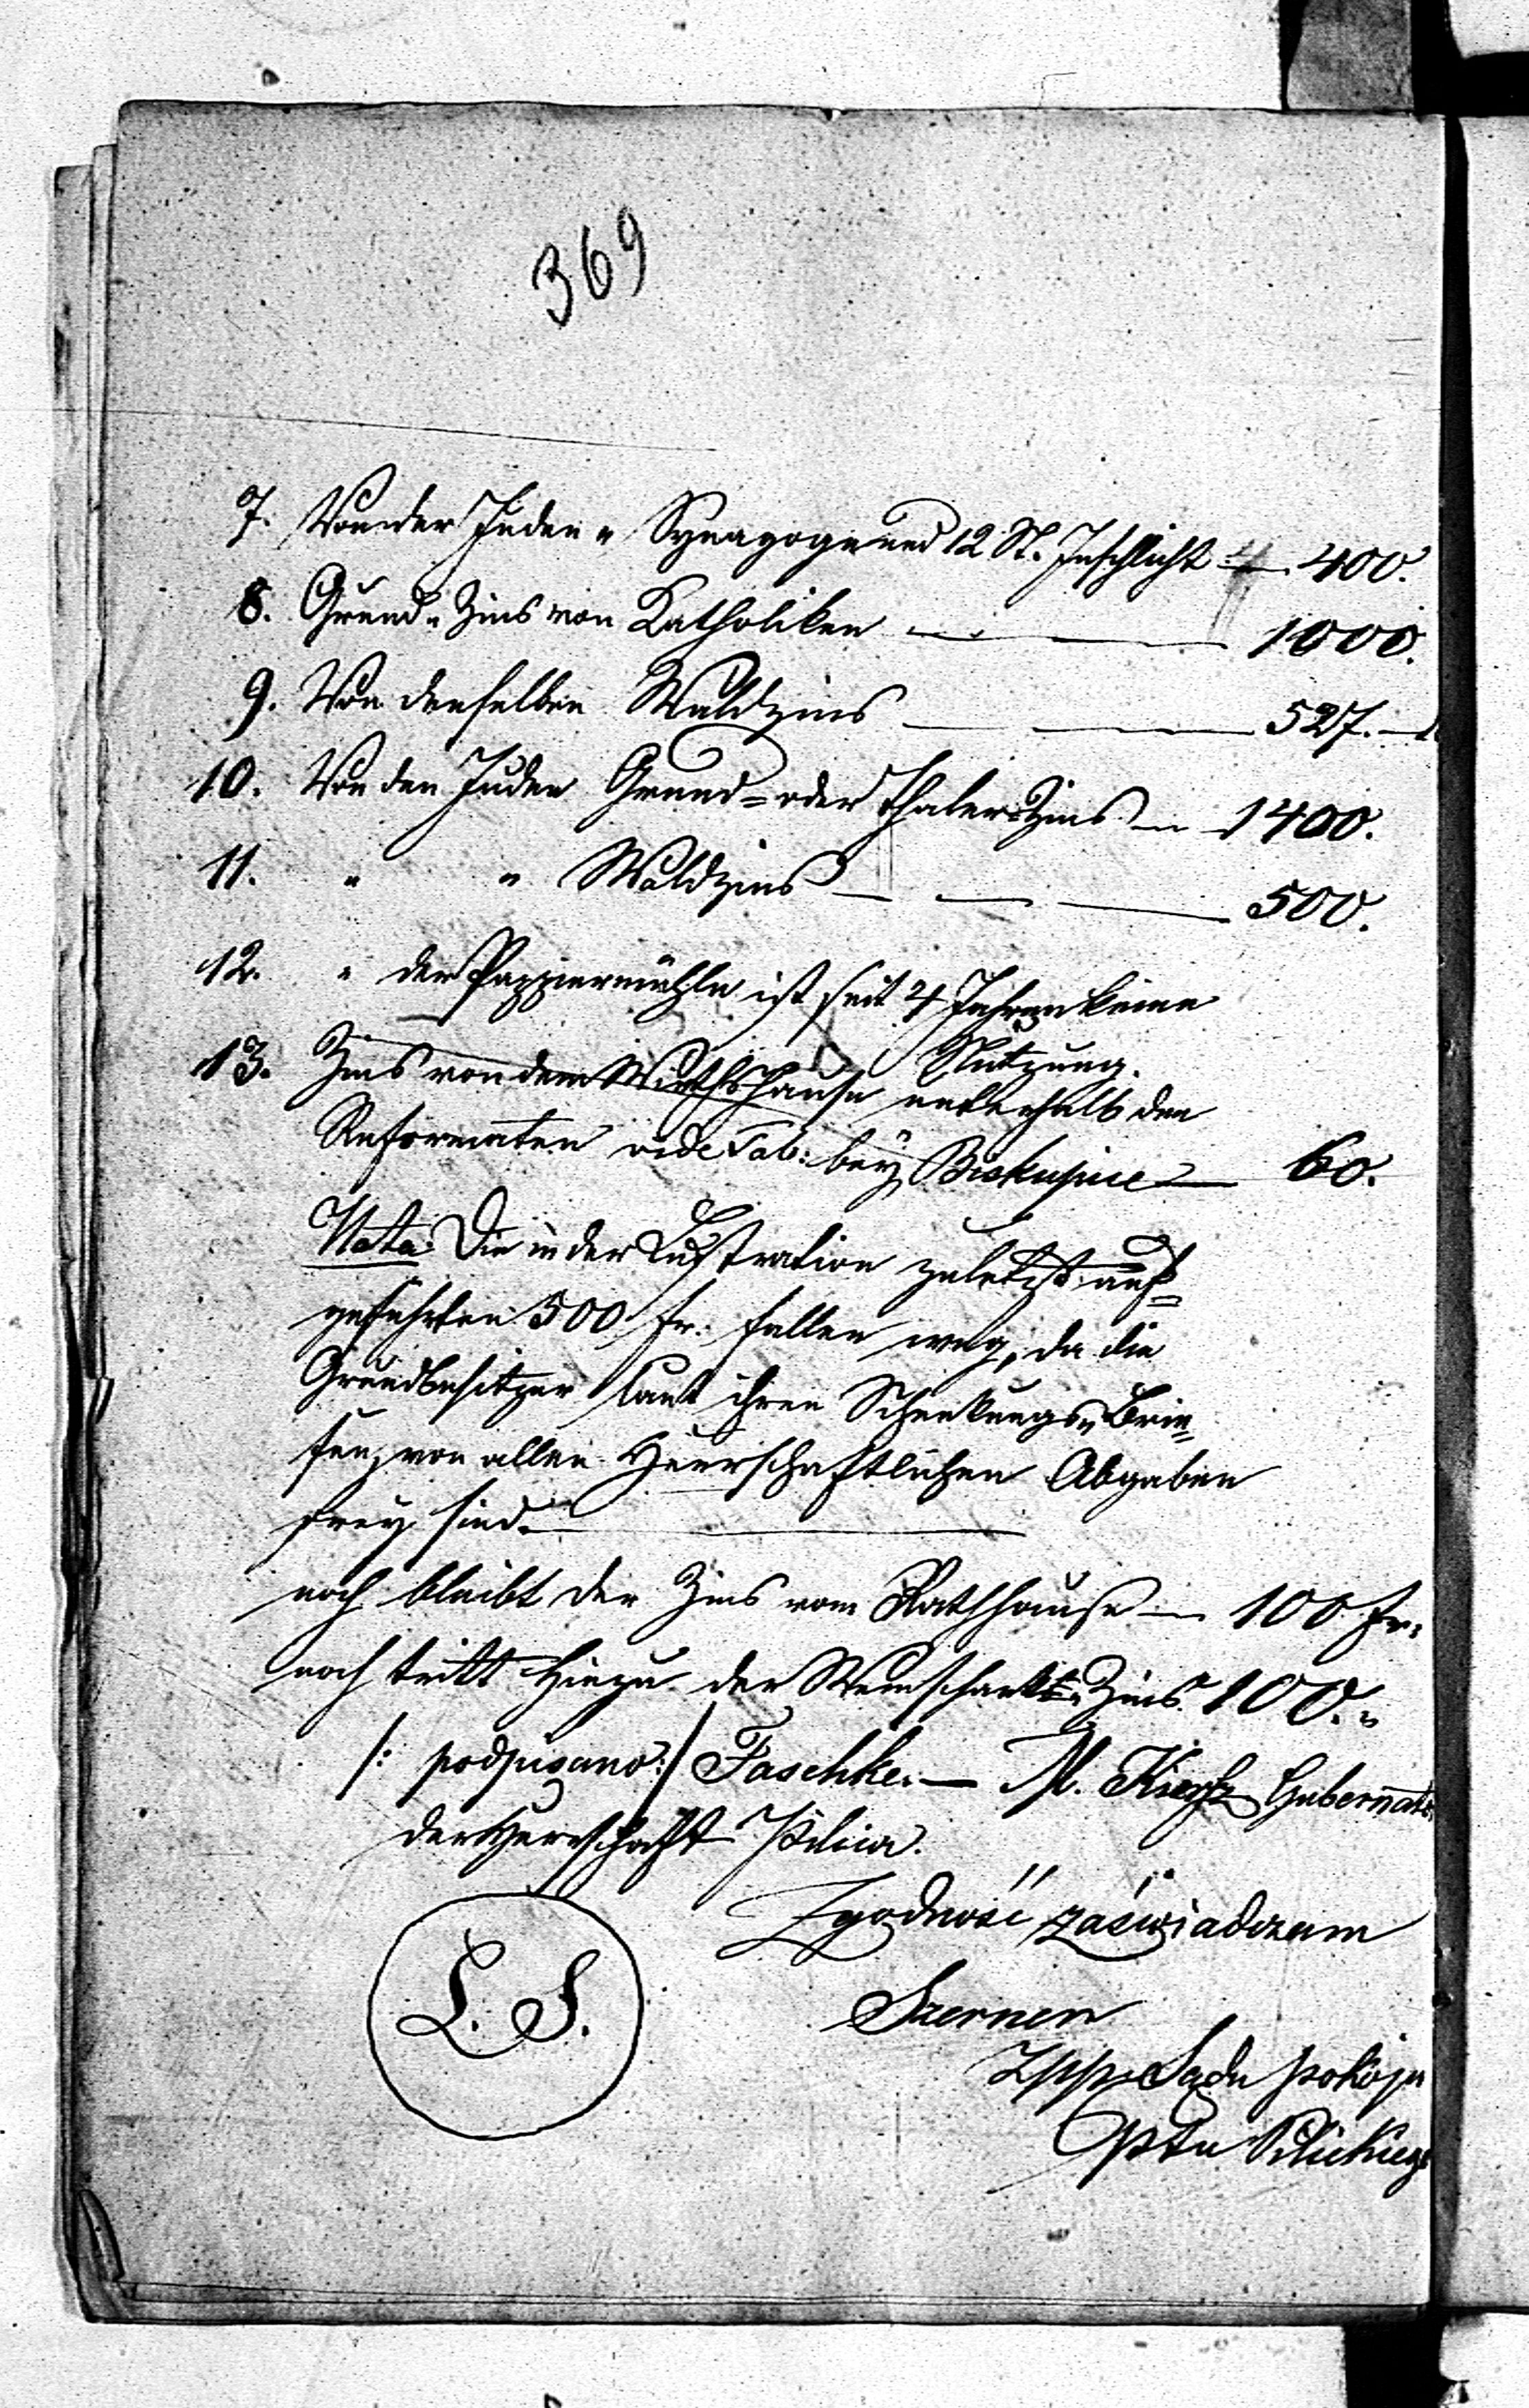 369
7. Von der Juden = Synagoge und 12 St. Inschlicht — 400.
8. Grund = Zins von Katholiken — — 1000.
9. Von denselben Waldzins — — 527. —
10. Von den Juden Grund = oder Thaler = Zins — 1400.
11. " " Waldzins — — — 500.
12. " der Pappiermühle ist seit 4 Jahren keine
Nutzung.
13. Zins von dem Wirthshause unterhalb den
Reformaten vide Tab: bey Biskupice — 60.
Nota. Die in der Lustration zuletzt auf=
geführten 500 fr. fallen weg, da die
Grundbesitzer laut ihren Schenkungs = Brie=
fen, von allen Herrschaftlichen Abgaben
frey sind. —
noch bleibt der Zins vom Rathhause — 100 fr.
noch tritt hinzu der Weinschank = Zins 100. "
/: podpisano :/ Faschke. — M. Gubernat.
der Herrschaft Pilica.
Zgodność zaświadczam
L. S.
Sądu pokoju
Pttu Pilickieg